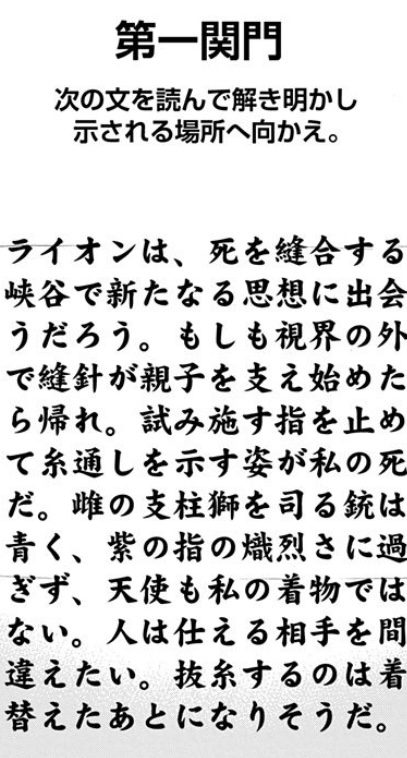 第一関門
次の文を読んで解き明かし
示される場所へ向かえ。
ライオンは、死を縫合する
峡谷で新たなる思想に出会
うだろう。もしも視界の外
で縫針が親子を支え始めた
ら帰れ。試み施す指を止め
て糸通しを示す姿が私の死
だ。雌の支柱獅を司る銃は
青く、紫の指の熾烈さに過
ぎず、天使も私の着物では
ない。人は仕える相手を間
違えたい。抜糸するのは着
替えたあとになりそうだ。